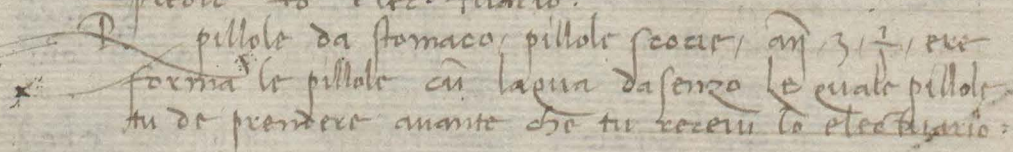 ℞ pillole da stomaco, pillole scocie, an̄ ʒ 1/2, ere
forma le pillole cū laqua dasenzo le quale pillole
tu de prendere auante che tu receui lo electuario: